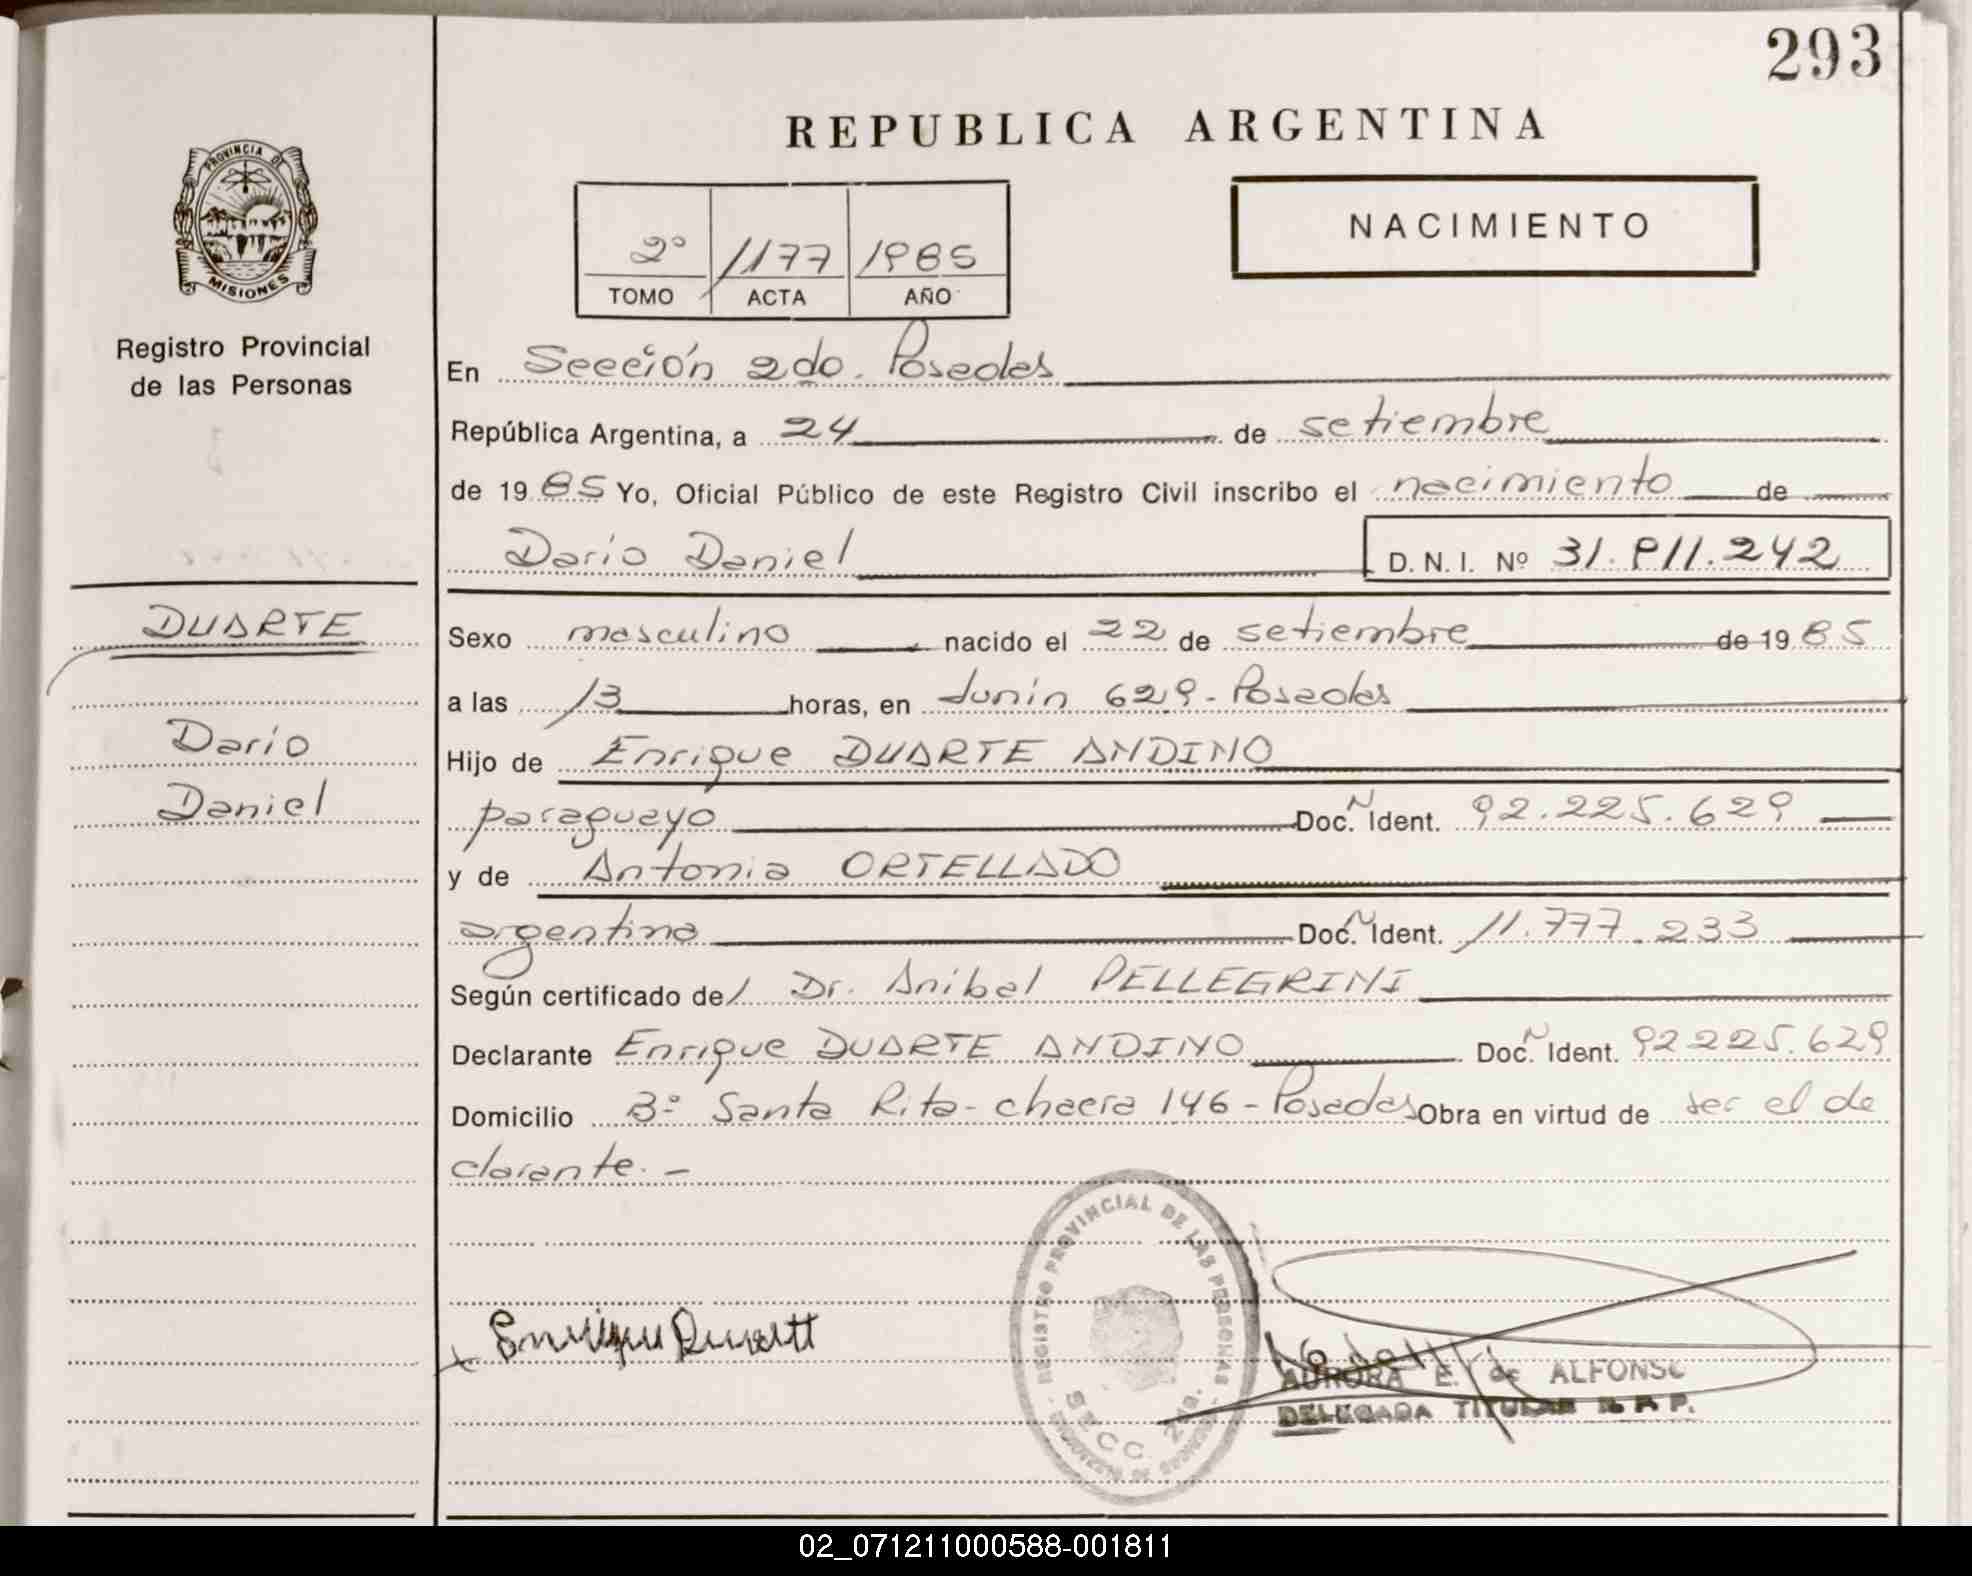 293
REPUBLICA ARGENTINA
PROVINCIA DE
MISIONES
Registro Provincial
de las Personas
NACIMIENTO
2º 1177 1985
TOMO ACTA AÑO
En Sección 2do. Posadas
República Argentina, a 24 de setiembre
de 1985 Yo, Oficial Público de este Registro Civil inscribo el nacimiento de
Dario Daniel D. N. I. Nº 31.811.242
DUARTE
Dario
Daniel
Sexo masculino nacido el 22 de setiembre de 1985
a las 13 horas, en Junin 629 - Posadas
Hijo de Enrique DUARTE ANDINO
paraguayo Doc. Ident. 92.225.629
y de Antonia ORTELLADO
argentina Doc. Ident. 11.777.233
Según certificado del Dr. Anibal PELLEGRINI
Declarante Enrique DUARTE ANDINO Doc. Ident. 92225.629
Domicilio Bº Santa Rita - chacra 146 - Posadas Obra en virtud de ser el de
clarante. -
REGISTRO PROVINCIAL DE LAS PERSONAS
SECC. 2
AURORA E. de ALFONSO
DELEGADA TITULAR R. P. P.
02_071211000588-001811